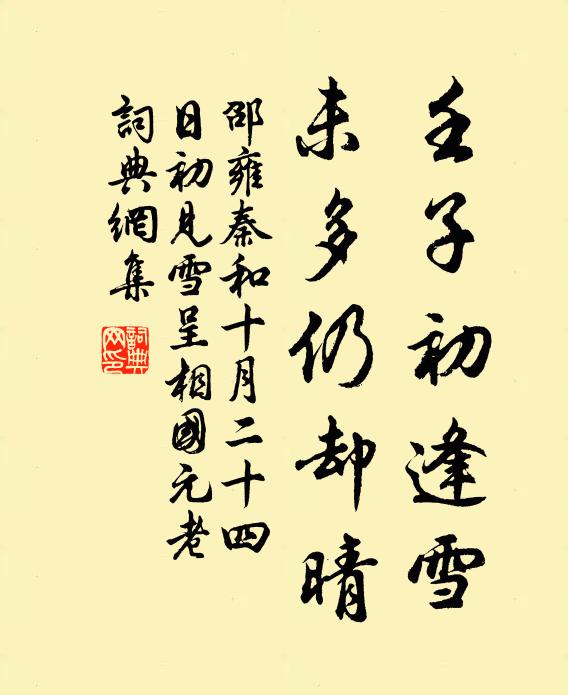 壬子初逢雪
未多仍却晴
邵雍秦和十月二十四
日初見雪呈相國元老
詞典網集
詞典
网印